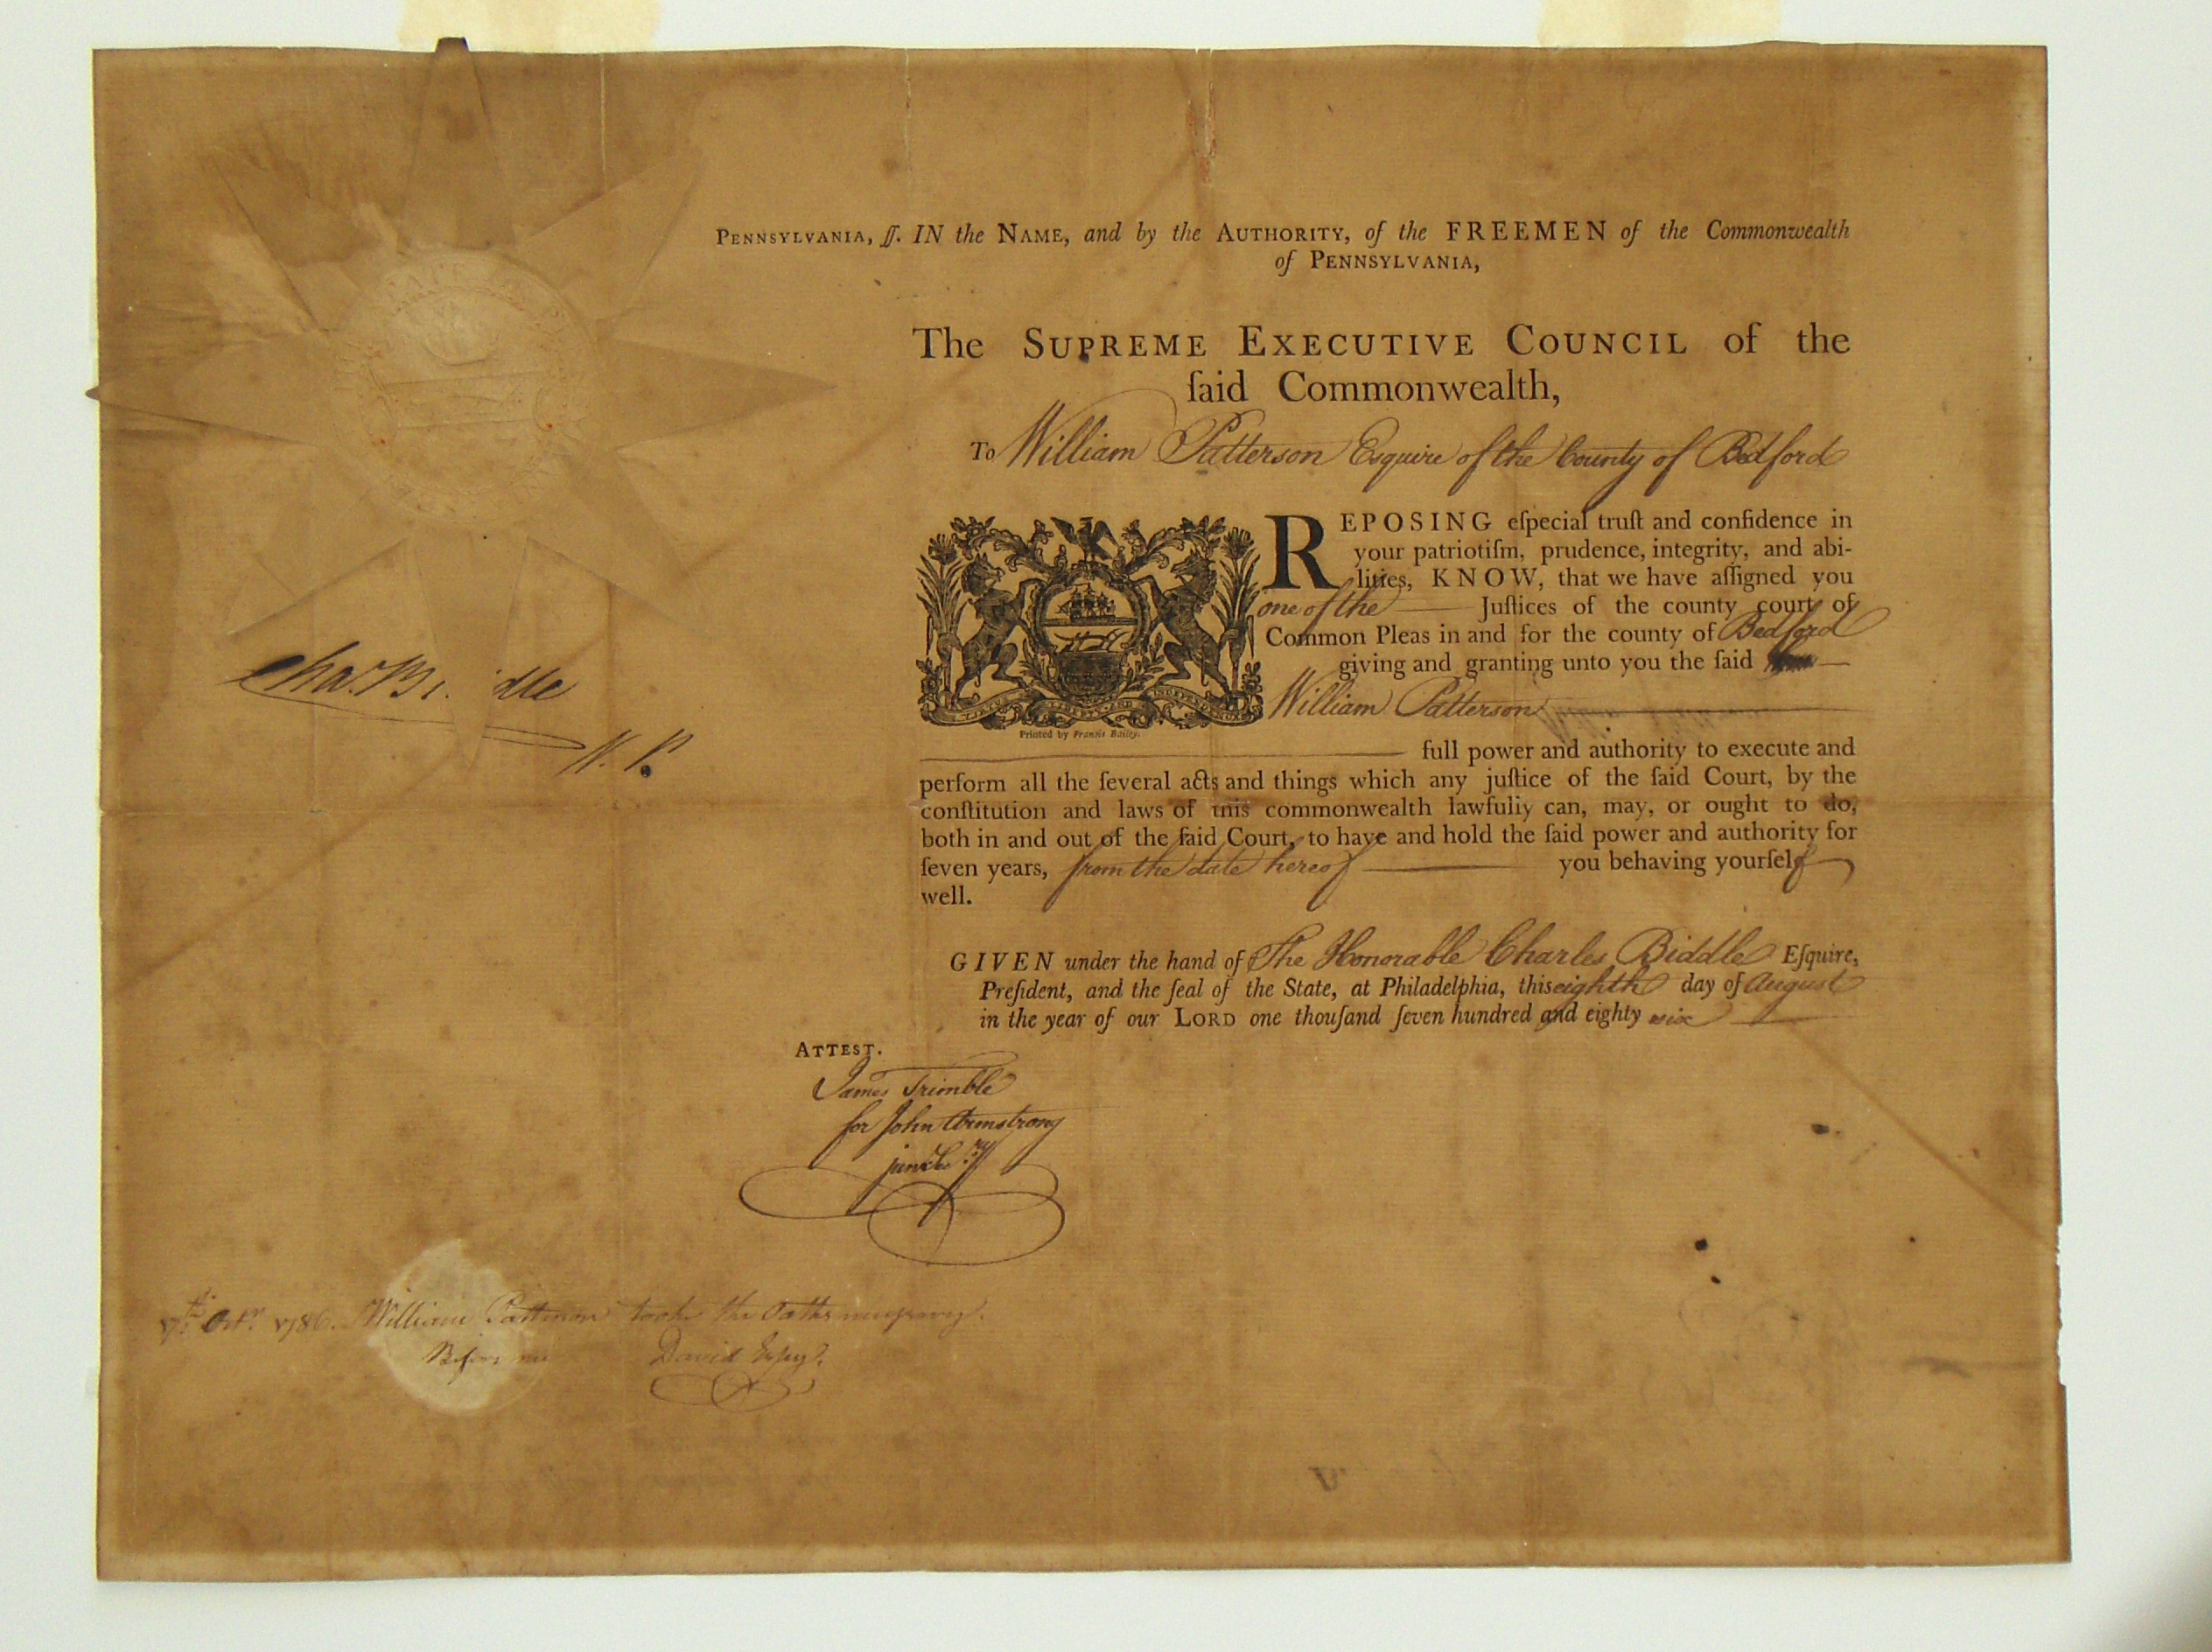 PENNSYLVANIA, ſſ. IN the NAME, and by the AUTHORITY, of the FREEMEN of the Commonwealth
of PENNSYLVANIA,
The SUPREME EXECUTIVE COUNCIL of the
ſaid Commonwealth,
To William Patterson Esquire of the County of Bedford
REPOSING eſpecial truſt and confidence in
your patriotiſm, prudence, integrity, and abi-
lities, KNOW, that we have aſſigned you
one of the Juſtices of the county court of
Common Pleas in and for the county of Bedford
giving and granting unto you the ſaid
William Patterson
Printed by Francis Bailey.
full power and authority to execute and
perform all the ſeveral acts and things which any juſtice of the ſaid Court, by the
conſtitution and laws of this commonwealth lawfully can, may, or ought to do,
both in and out of the ſaid Court, to have and hold the ſaid power and authority for
ſeven years, from the date hereof you behaving yourſelf
well.
GIVEN under the hand of The Honorable Charles Biddle Eſquire,
Preſident, and the ſeal of the State, at Philadelphia, this eighth day of August
in the year of our LORD one thouſand ſeven hundred and eighty six
Cha. Bi dle
V. P.
ATTEST.
James Trimble
for John Armstrong
jun Sec.ry
Octr. 1786. William Patterson took the Oaths
Before me David Espy